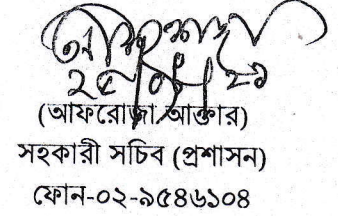 (আফরোজা আক্তার)
সহকারী সচিব (প্রশাসন)
ফোন-০২-৯৫৪৬১০৪